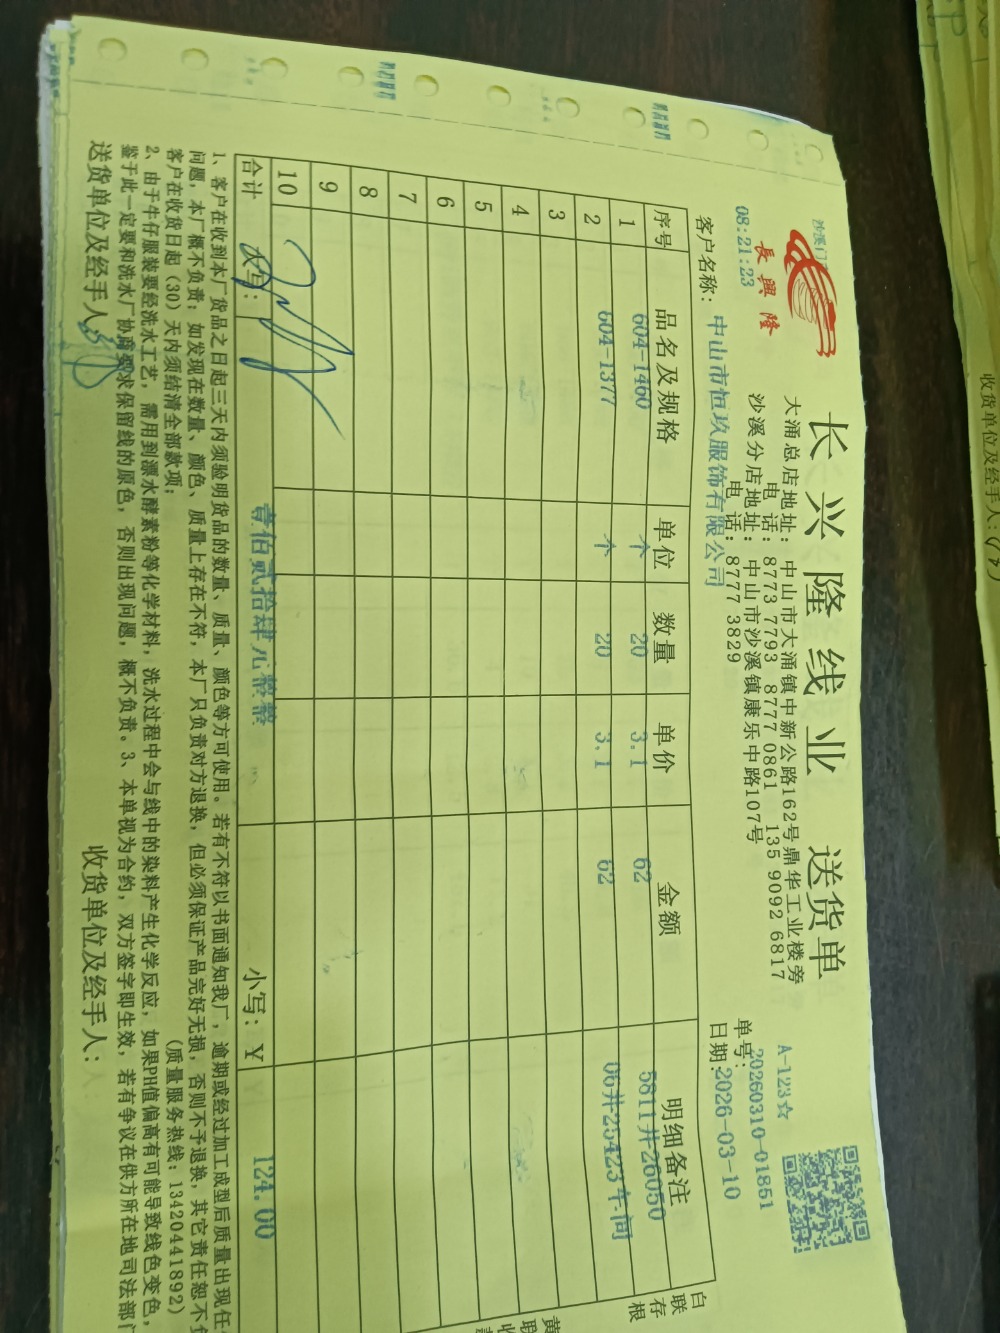 沙溪门
長興隆
长兴隆线业 送货单
大涌总店地址：中山市大涌镇中新公路162号鼎华工业楼旁
电话：8773 7793 8777 0861 135 9092 6817
沙溪分店地址：中山市沙溪镇康乐中路107号
电话：8777 3829
08:21:23
A-123☆
单号：20260310-01851
日期：2026-03-10
客户名称：中山市恒玖服饰有限公司
序号 品名及规格 单位 数量 单价 金额 明细备注
1 604-1460 个 20 3.1 62 5811井26050
2 604-1377 个 20 3.1 62 06井25423车间
3
4
5
6
7
8
9
10
合计 大写：壹佰贰拾肆元整 小写：¥ 124.00
白联存根
1、客户在收到本厂货品之日起三天内须验明货品的数量、质量、颜色等方可使用。若有不符以书面通知我厂，逾期或经过加工成型后质量出现任
问题，本厂概不负责；如发现在数量、颜色、质量上存在不符，本厂只负责对方退换，但必须保证产品完好无损，否则不予退换，其它责任恕不
客户在收货日起（30）天内须结清全部款项； （质量服务热线：13420441892）
2、由于牛仔服装要经洗水工艺，需用到漂水酵素粉等化学材料，洗水过程中会与线中的染料产生化学反应，如果PH值偏高有可能导致线色变色，
鉴于此一定要和洗水厂协商要求保留线的原色，否则出现问题，概不负责。3、本单视为合约，双方签字即生效，若有争议在供方所在地司法部门
送货单位及经手人： 收货单位及经手人：
收货单位及经手人：